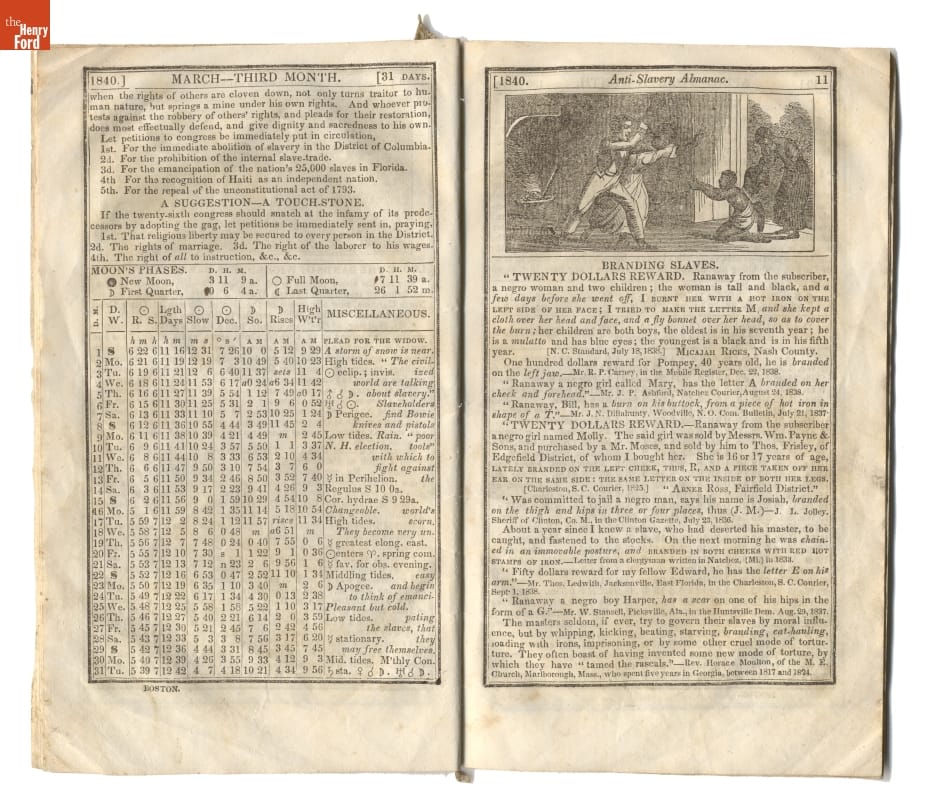 the
Henry
Ford
1840.] MARCH—THIRD MONTH. [31 DAYS.
when the rights of others are cloven down, not only turns traitor to hu-
man nature, but springs a mine under his own rights. And whoever pro-
tests against the robbery of others' rights, and pleads for their restoration,
does most effectually defend, and give dignity and sacredness to his own.
Let petitions to congress be immediately put in circulation,
1st. For the immediate abolition of slavery in the District of Columbia.
2d. For the prohibition of the internal slave-trade.
3d. For the emancipation of the nation's 25,000 slaves in Florida.
4th For the recognition of Haiti as an independent nation.
5th. For the repeal of the unconstitutional act of 1793.
A SUGGESTION—A TOUCH-STONE.
If the twenty-sixth congress should snatch at the infamy of its prede-
cessors by adopting the gag, let petitions be immediately sent in, praying,
1st. That religious liberty may be secured to every person in the District.
2d. The rights of marriage. 3d. The right of the laborer to his wages.
4th. The right of all to instruction, &c., &c.
MOON'S PHASES. D. H. M. D. H. M.
● New Moon, 3 11 9 a. ○ Full Moon, 11 39 a.
☽ First Quarter, 6 4 a. ☾ Last Quarter, 26 1 52 m.
D. M. D. W. ☉ R. S. Lgth Days ☉ Slow ☉ Dec. ☽ So. ☽ Rises High W't'r MISCELLANEOUS.
h m h m m s ° s ′ A M A M A M PLEAD FOR THE WIDOW.
1 S 6 22 6 11 16 12 31 7 26 10 0 5 12 9 29 A storm of snow is near.
2 Mo. 6 21 6 11 19 12 19 7 3 10 49 5 40 10 23 High tides. "The civil-
3 Tu. 6 19 6 11 21 12 6 6 40 11 37 sets 11 4 ☉ eclip.; invis. ized
4 We. 6 18 6 11 24 11 53 6 17 a0 24 a6 34 11 42 world are talking
5 Th. 6 16 6 11 27 11 39 5 54 1 12 7 49 a0 17 ♂ ☌ ☽. about slavery."
6 Fr. 6 15 6 11 30 11 25 5 31 2 1 9 6 0 52 ♅ ☌ ☉. Slaveholders
7 Sa. 6 13 6 11 33 11 10 5 7 2 53 10 25 1 24 ☽ Perigee. find Bowie
8 S 6 12 6 11 36 10 55 4 44 3 49 11 45 2 4 knives and pistols
9 Mo. 6 11 6 11 38 10 39 4 21 4 49 m 2 45 Low tides. Rain. "poor
10 Tu. 6 9 6 11 41 10 24 3 57 5 50 1 1 3 37 N. H. election. tools"
11 We. 6 8 6 11 44 10 8 3 33 6 53 2 10 4 34 with which to
12 Th. 6 6 6 11 47 9 50 3 10 7 54 3 7 6 0 fight against
13 Fr. 6 5 6 11 50 9 34 2 46 8 50 3 52 7 40 ☿ in Perihelion. the
14 Sa. 6 3 6 11 53 9 17 2 23 9 41 4 26 9 3 Regulus S 10 0a.
15 S 6 2 6 11 56 9 0 1 59 10 29 4 54 10 8 Cor. hydrae S 9 29a.
16 Mo. 5 1 6 11 59 8 42 1 35 11 14 5 18 10 54 Changeable. world's
17 Tu. 5 59 7 12 2 8 24 1 12 11 57 rises 11 34 High tides. scorn.
18 We. 5 58 7 12 5 8 6 0 48 m a6 51 m They become very un.
19 Th. 5 56 7 12 7 7 48 0 24 0 40 7 55 0 6 ☿ greatest elong. east.
20 Fr. 5 55 7 12 10 7 30 s 1 1 22 9 1 0 36 ☉ enters ♈. spring com.
21 Sa. 5 53 7 12 13 7 12 n 23 2 6 9 56 1 6 ☿ fav. for obs. evening.
22 S 5 52 7 12 16 6 53 0 47 2 52 11 10 1 34 Middling tides. easy
23 Mo. 5 50 7 12 19 6 35 1 10 3 40 m 2 6 ☽ Apogee. and begin
24 Tu. 5 49 7 12 22 6 17 1 34 4 30 0 13 2 38 to think of emanci-
25 We. 5 48 7 12 25 5 58 1 58 5 22 1 10 3 17 Pleasant but cold.
26 Th. 5 46 7 12 27 5 40 2 21 6 14 2 0 3 59 Low tides. pating
27 Fr. 5 45 7 12 30 5 21 2 45 7 6 2 42 4 56 the slaves, that
28 Sa. 5 43 7 12 33 5 3 3 8 7 56 3 17 6 20 ☿ stationary. they
29 S 5 42 7 12 36 4 44 3 31 8 45 3 45 7 45 may free themselves.
30 Mo. 5 40 7 12 39 4 26 3 55 9 33 4 12 9 3 Mid. tides. M'thly Con.
31 Tu. 5 39 7 12 42 4 7 4 18 10 21 4 34 9 56 ♄ sta. ♀ ☌ ☽. ♅ ☌ ☽.
BOSTON.
[1840. Anti-Slavery Almanac. 11
BRANDING SLAVES.
"TWENTY DOLLARS REWARD. Ranaway from the subscriber,
a negro woman and two children; the woman is tall and black, and a
few days before she went off, I BURNT HER WITH A HOT IRON ON THE
LEFT SIDE OF HER FACE; I TRIED TO MAKE THE LETTER M, and she kept a
cloth over her head and face, and a fly bonnet over her head, so as to cover
the burn; her children are both boys, the oldest is in his seventh year; he
is a mulatto and has blue eyes; the youngest is a black and is in his fifth
year. [N. C. Standard, July 18, 1838.] MICAJAH RICKS, Nash County.
One hundred dollars reward for Pompey, 40 years old, he is branded
on the left jaw.—Mr. R. P. Carney, in the Mobile Register, Dec. 22, 1838.
"Ranaway a negro girl called Mary, has the letter A branded on her
cheek and forehead."—Mr. J. P. Ashford, Natchez Courier, August 24, 1838.
"Ranaway, Bill, has a burn on his buttock, from a piece of hot iron in
shape of a T."—Mr. J. N. Dillahunty, Woodville, N. O. Com. Bulletin, July 21, 1837.
"TWENTY DOLLARS REWARD.—Ranaway from the subscriber
a negro girl named Molly. The said girl was sold by Messrs. Wm. Payne &
Sons, and purchased by a Mr. Moses, and sold by him to Thos. Frisley, of
Edgefield District, of whom I bought her. She is 16 or 17 years of age,
LATELY BRANDED ON THE LEFT CHEEK, THUS, R, AND A PIECE TAKEN OFF HER
EAR ON THE SAME SIDE: THE SAME LETTER ON THE INSIDE OF BOTH HER LEGS.
[Charleston, S. C. Courier, 1825.] "ABNER ROSS, Fairfield District."
"Was committed to jail a negro man, says his name is Josiah, branded
on the thigh and hips in three or four places, thus (J. M.)—J. L. Jolley.
Sheriff of Clinton, Co. M., in the Clinton Gazette, July 23, 1836.
About a year since I knew a slave, who had deserted his master, to be
caught, and fastened to the stocks. On the next morning he was chain-
ed in an immovable posture, and BRANDED IN BOTH CHEEKS WITH RED HOT
STAMPS OF IRON.—Letter from a clergyman written in Natchez, (Mi.) in 1833.
"Fifty dollars reward for my fellow Edward, he has the letter E on his
arm."—Mr. Thos. Ledwith, Jacksonville, East Florida, in the Charleston, S. C. Courier,
Sept. 1, 1838.
"Ranaway a negro boy Harper, has a scar on one of his hips in the
form of a G."—Mr. W. Stansell, Picksville, Ala., in the Huntsville Dem. Aug. 29, 1837.
The masters seldom, if ever, try to govern their slaves by moral influ-
ence, but by whipping, kicking, beating, starving, branding, cat-hauling,
loading with irons, imprisoning, or by some other cruel mode of tortur-
ture. They often boast of having invented some new mode of torture, by
which they have "tamed the rascals."—Rev. Horace Moulton, of the M. E.
Church, Marlborough, Mass., who spent five years in Georgia, between 1817 and 1824.